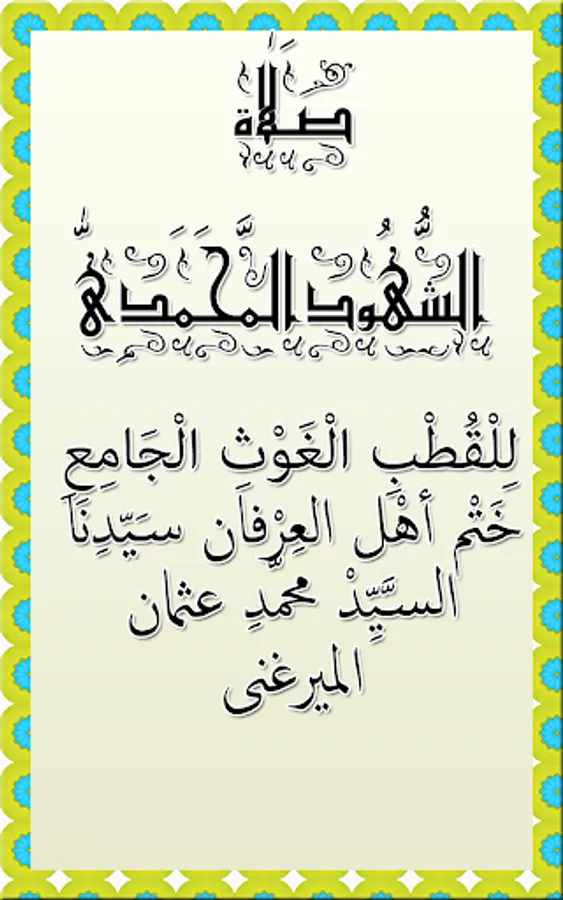 صَلَاة
الشُّهُود المَُّحَمَدىُّ
لِلْقُطْبِ الْغَوْثِ الْجَامِعِ
خَتْم أهْل العِرْفان سيَّدِنَا
السيَّدْ محمَّدِ عثمان
الميرغنى